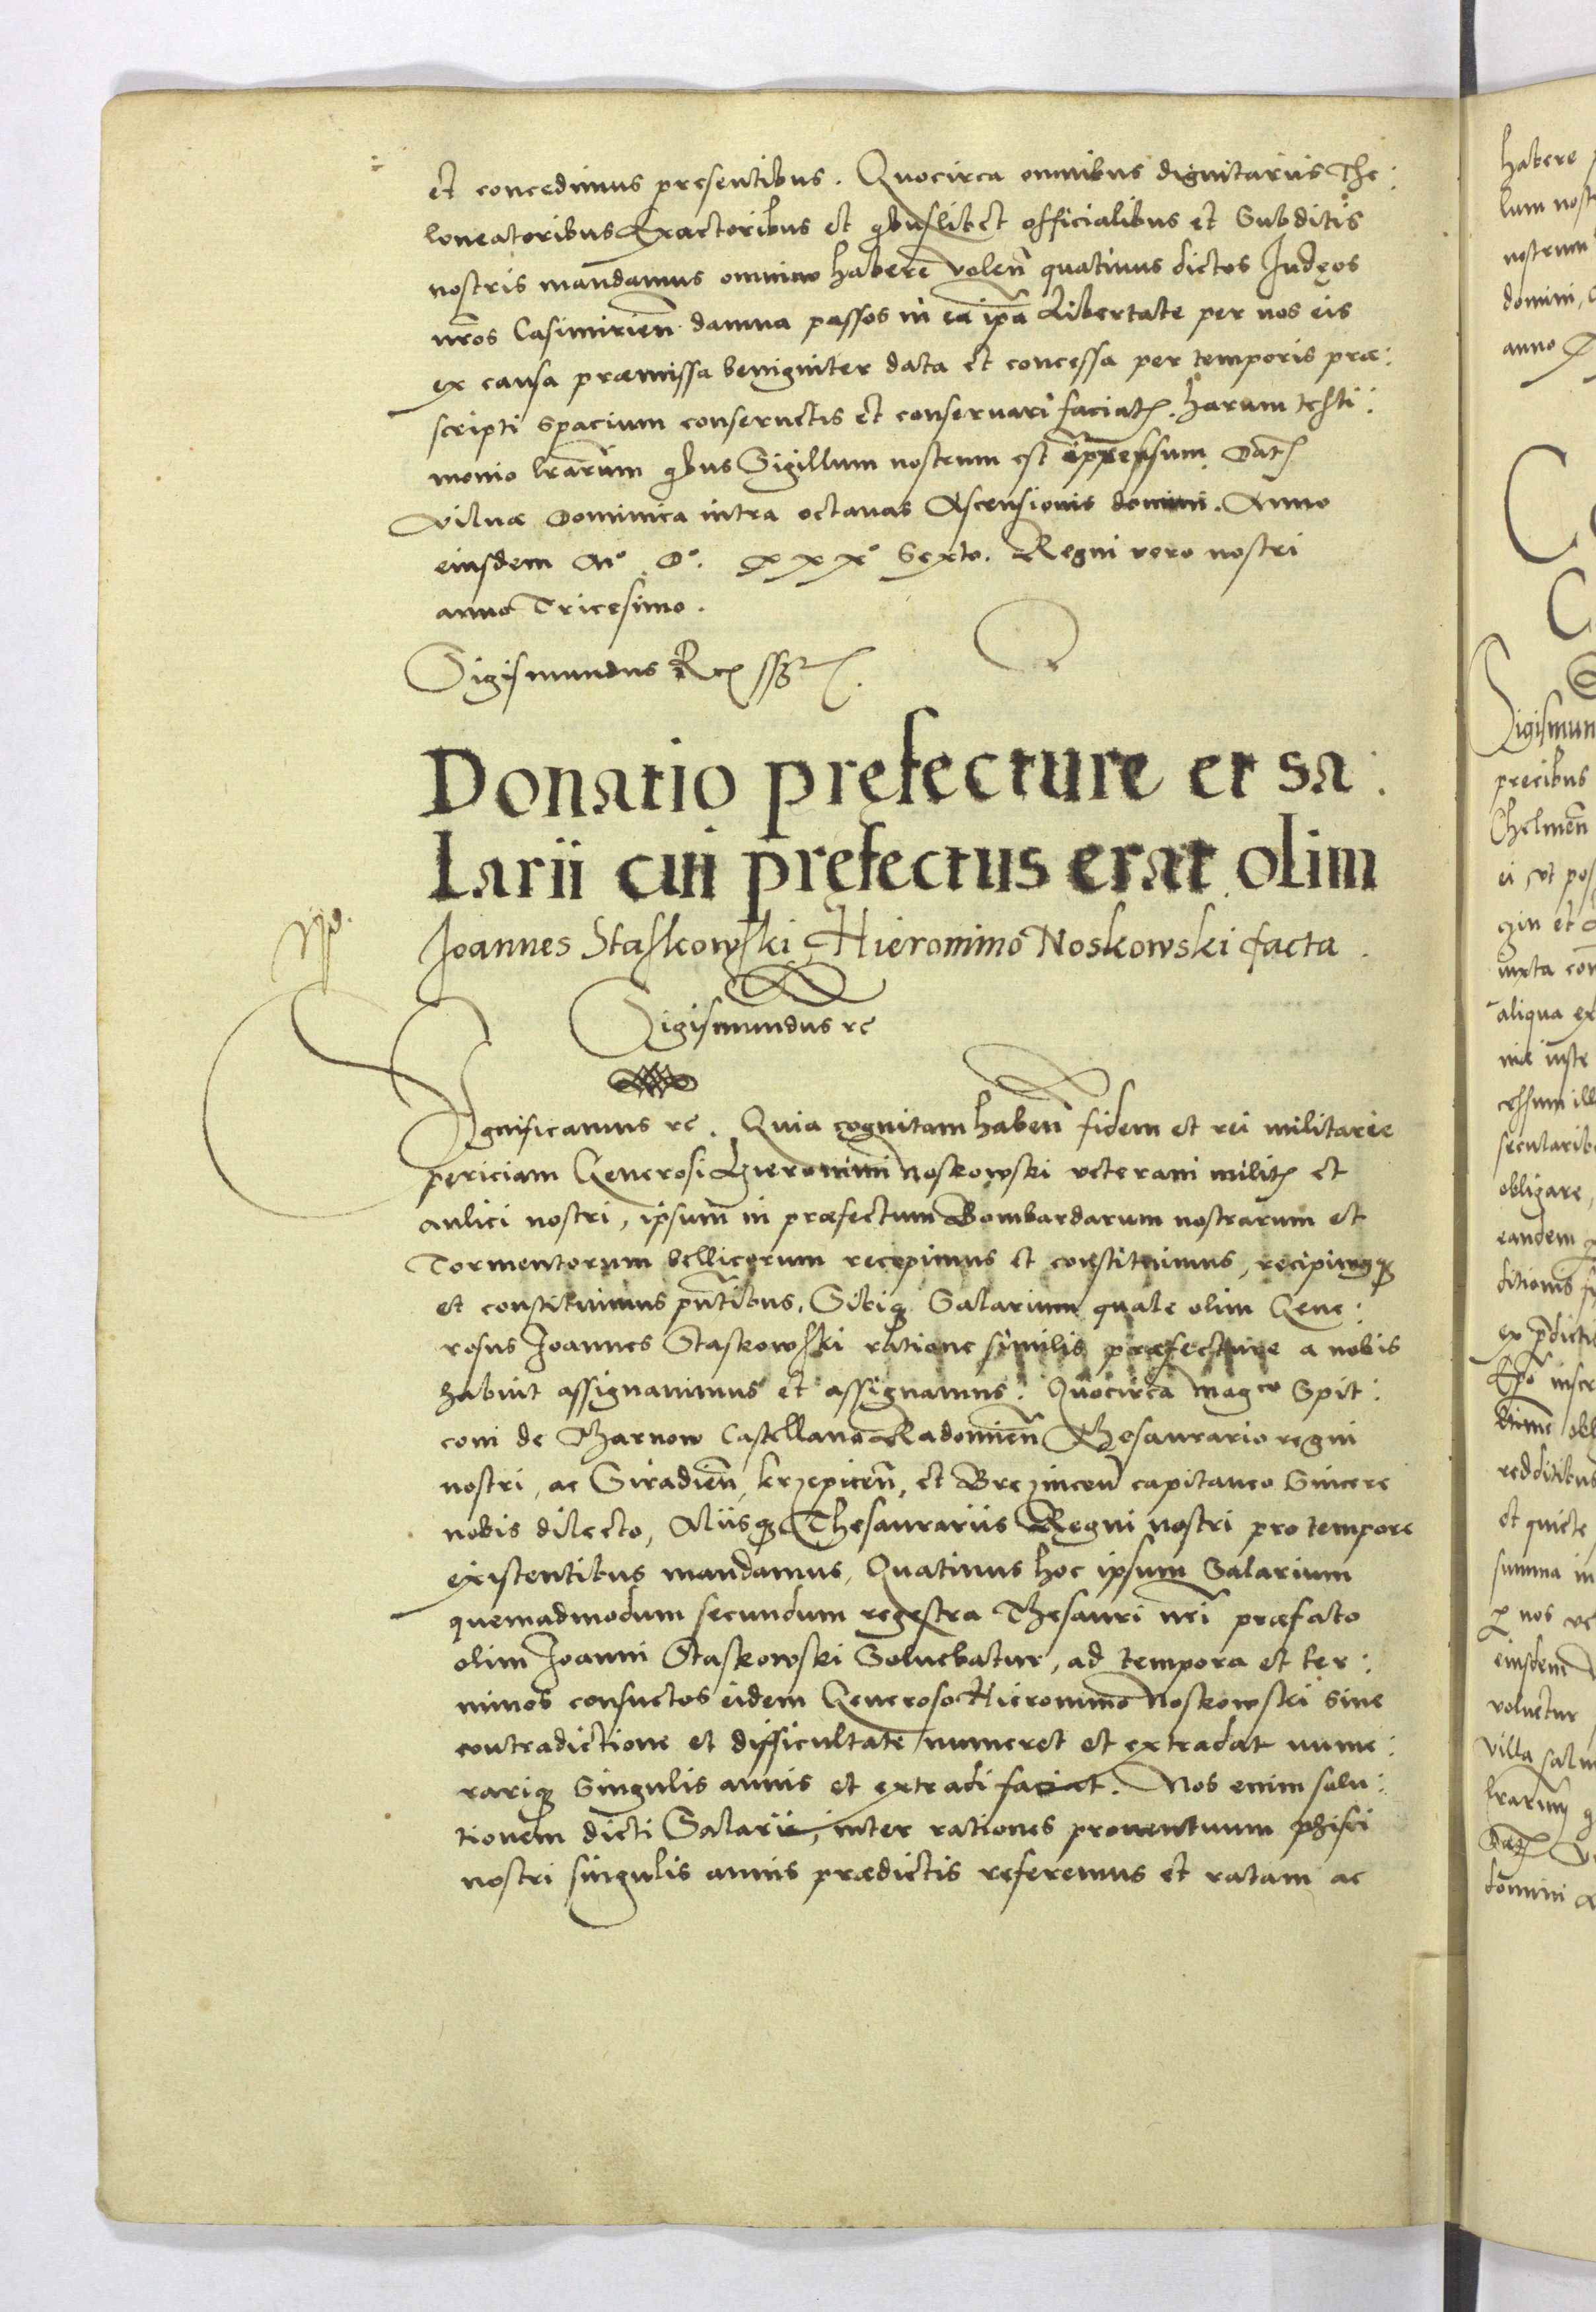 et concedimus presentibus. Quocirca omnibus dignitariis The:
loneatoribus Exactoribus et qbuslibet officialibus et Subditis
nostris mandamus omnino habere volen̄ quatinus dictos Iudęos
nr̄os Casimirien̄ damna passos in ea ip̄a Libertate per nos eis
ex causa præmissa benigniter data et concessa per temporis præ:
scripti Spacium conseruetis et conseruari faciatꝭ. harum testi:
monio lr̄arum qbus Sigillum nostrum est īppressum Datꝭ
Vilnæ Dominica intra octauas Ascensionis domini. Anno
eiusdem Mº. Dº. xxxº Sexto. Regni vero nostri
anno Tricesimo.
Sigismundus Rex sst
Donatio pręfecture et sa:
larii cui pręfectus erat olim
Joannes Staskowski, Hieronimo Noskowski facta.
Sigismundus rc
Significamus rc. Quia cognitam haben̄ fidem et rei militarie
periciam Generosi Hieronimi Noskowski veterani militꝭ et
aulici nostri, ipsum in præfectum Bombardarum nostrarum et
Tormentorum bellicorum recepimus et constituimus, recipimusqꝫ
et constituimus pn̄tibus, Sibiqꝫ Salarium quale olim Gene:
rosus Joannes Staskowski ratione similis præfecture a nobis
habuit assignauimus et assignamus. Quocirca Magco Spit:
coni de Tharnow Castellano Radomien̄ Thesaurario regni
nostri, ac Siradien̄, krzepicen̄, et Brezincen̄ capitaneo Sincere
nobis dilecto, Aliisqꝫ Thesaurariis Regni nostri pro tempore
existentibus mandamus, Quatinus hoc ipsum Salarium
quemadmodum secundum regestra Thesauri nr̄i præfato
olim Joanni Staskowski Soluebatur, ad tempora et ter:
minos consuetos eidem Generoso Hieronimo Noskowski sine
contradictione et difficultate numeret et extradat nume:
rariqꝫ Singulis annis et extradi faciat. Nos enim solu:
tionem dicti Salarii, inter rationes prouentuum phisci
nostri singulis annis prædictis referemus et ratam ac